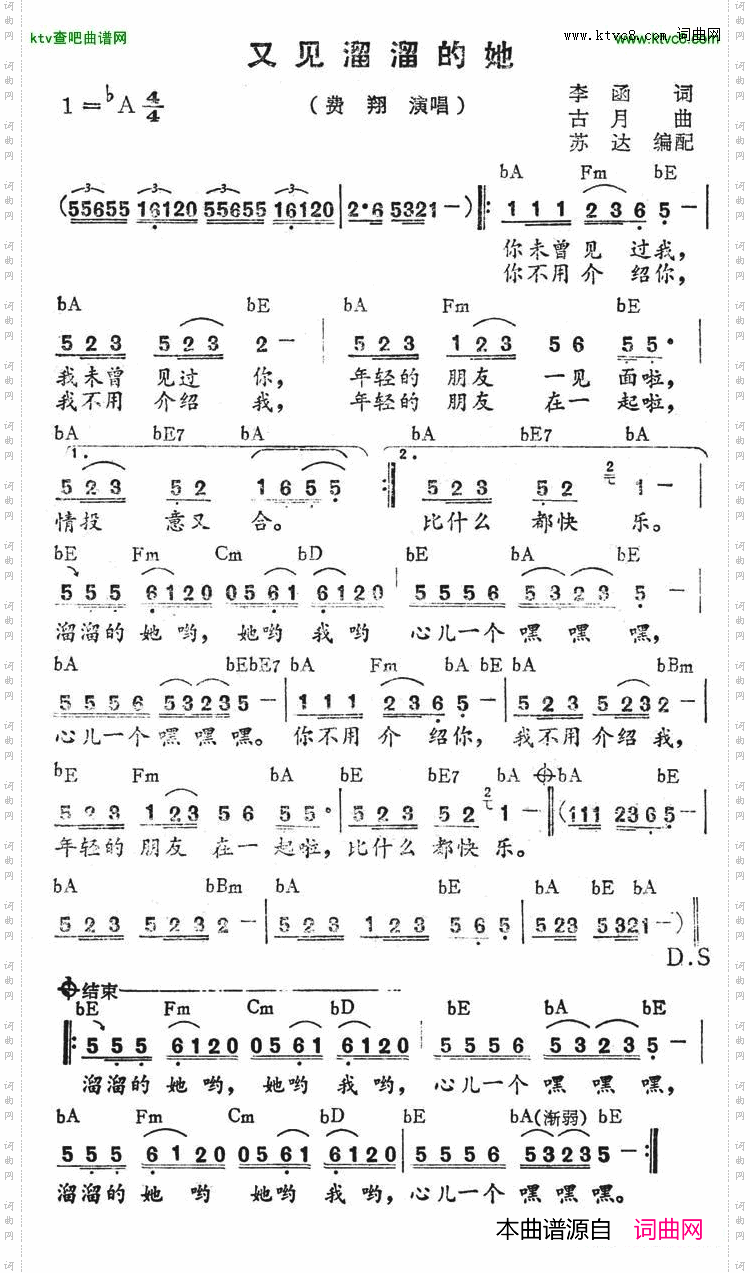 ktv查吧曲谱网
www.ktvc8.com 词曲网
www.ktvc8.com
又见溜溜的她
1=bA 4/4
(费翔 演唱)
李函 词
古月 曲
苏达 编配
bA Fm bE
(55655 16120 55655 16120 | 2·6 5321 -) ‖: 1 1 1 2 3 6 5 - |
你未曾见 过我,
你不用介 绍你,
bA bE bA Fm bE
5 2 3 5 2 3 2 - | 5 2 3 1 2 3 5 6 5 5· |
我未曾 见过 你, 年轻的 朋友 一见 面啦,
我不用 介绍 我, 年轻的 朋友 在一 起啦,
bA bE7 bA bA bE7 bA
1. 2.
5 2 3 5 2 1 6 5 5 :‖ 5 2 3 5 2 1 - |
情投 意又 合。 比什么 都快 乐。
bE Fm Cm bD bE bA bE
5 5 5 6120 0561 6120 | 5 5 5 6 5323 5 - |
溜溜的 她哟, 她哟 我哟 心儿一个 嘿嘿 嘿,
bA bEbE7 bA Fm bA bE bA bBm
5 5 5 6 53235 - | 1 1 1 2 3 6 5 - | 5 2 3 5 2 3 2 - |
心儿一个 嘿嘿嘿。 你不用 介 绍你, 我不用 介绍 我,
bE Fm bA bE bE7 bA bA bE
5 2 3 1 2 3 5 6 5 5· | 5 2 3 5 2 1 - ‖ (111 2365 -
年轻的 朋友 在一 起啦, 比什么 都快 乐。
bA bBm bA bE bA bE bA
5 2 3 5 2 3 2 - | 5 2 3 1 2 3 5 6 5 | 523 5321 -) ‖
D.S
结束
bE Fm Cm bD bE bA bE
‖: 5 5 5 6120 0561 6120 | 5 5 5 6 5323 5 - |
溜溜的 她哟, 她哟 我哟, 心儿一个 嘿 嘿 嘿,
bA Fm Cm bD bE bA(渐弱) bE
5 5 5 6120 0561 6120 | 5 5 5 6 53235 - :‖
溜溜的 她 哟 她哟 我 哟, 心儿一个 嘿嘿嘿。
本曲谱源自 词曲网